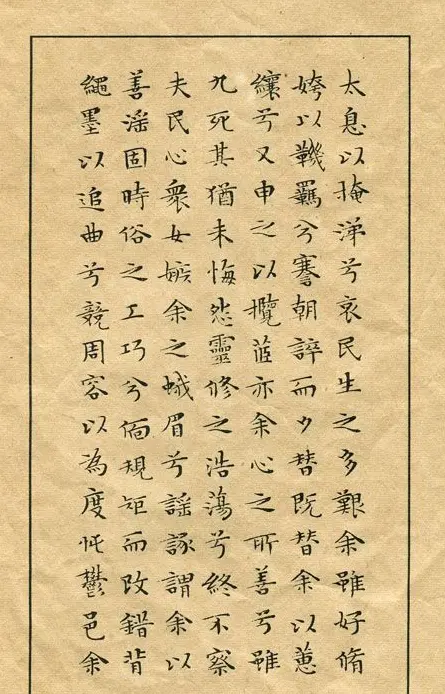 太息以掩涕兮哀民生之多艱余雖好脩
姱以鞿羈兮謇朝誶而夕替既替余以蕙
纕兮又申之以攬茝亦余心之所善兮雖
九死其猶未悔怨靈修之浩蕩兮終不察
夫民心衆女嫉余之蛾眉兮謠諑謂余以
善淫固時俗之工巧兮偭規矩而改錯背
繩墨以追曲兮競周容以為度忳鬱邑余